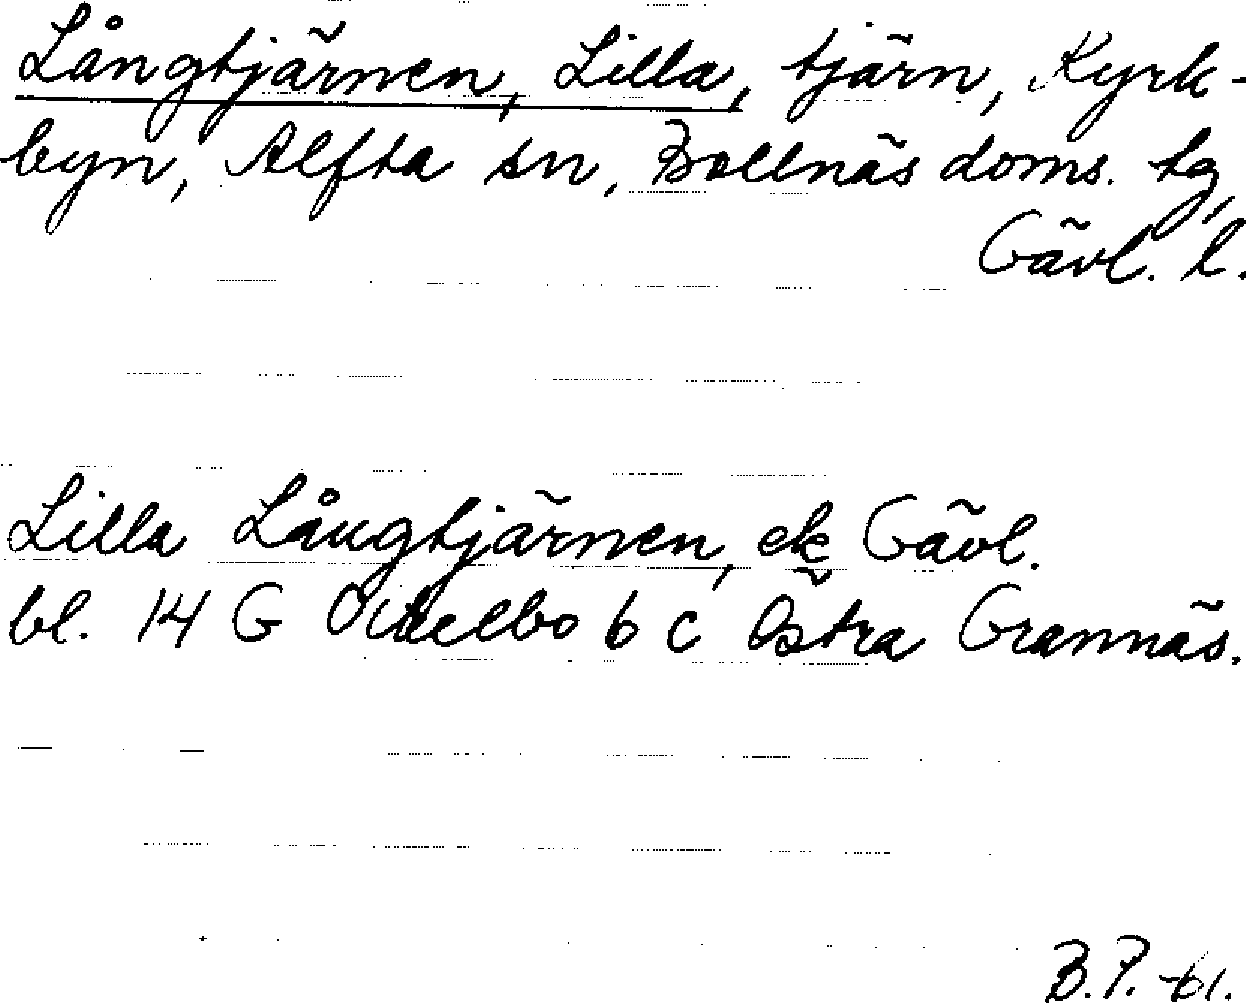 Långtjärnen, Lilla, tjärn, Kyrk-
byn, Alfta sn, Bollnäs doms. tg,
Gävl. l.
Lilla Långtjärnen, ek Gävl.
bl. 14 G Ockelbo b c Östra Grannäs.
B.P. -61.